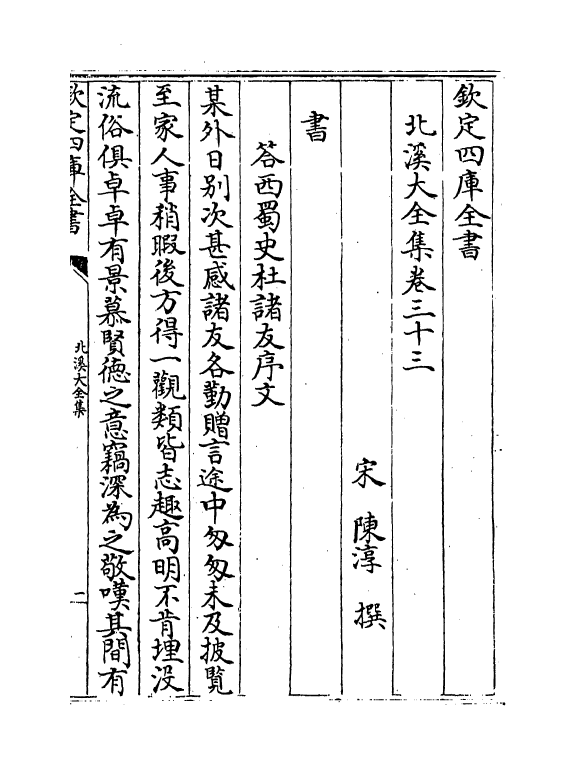 欽定四庫全書
北溪大全集卷三十三
宋 陳淳 撰
書
答西蜀史杜諸友序文
某外日别次甚感諸友各勤贈言途中匆匆未及披覽
至家人事稍暇後方得一觀類皆志趣高明不肯埋没
流俗俱卓卓有景慕賢徳之意竊深為之敬嘆其間有
欽定四庫全書
北溪大全集
一